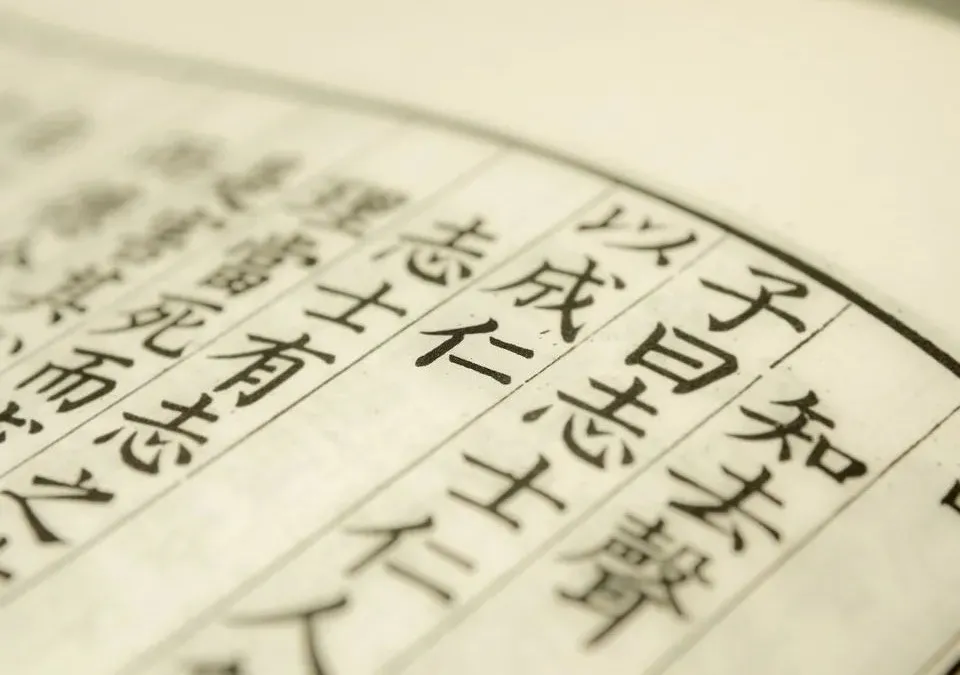 知去聲
子曰志士仁人
以成仁
志士有志之
理當死而求
是害其